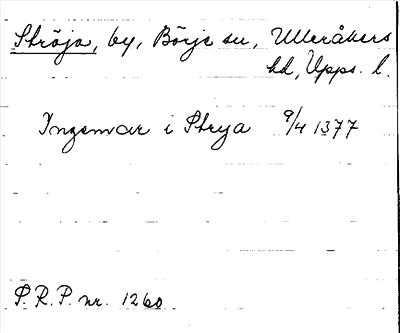 Ströja, by, Börje sn, Ulleråkers
hd, Upps. l.
Ingemar i Strya 9/4 1377
S.R.P. nr. 1260